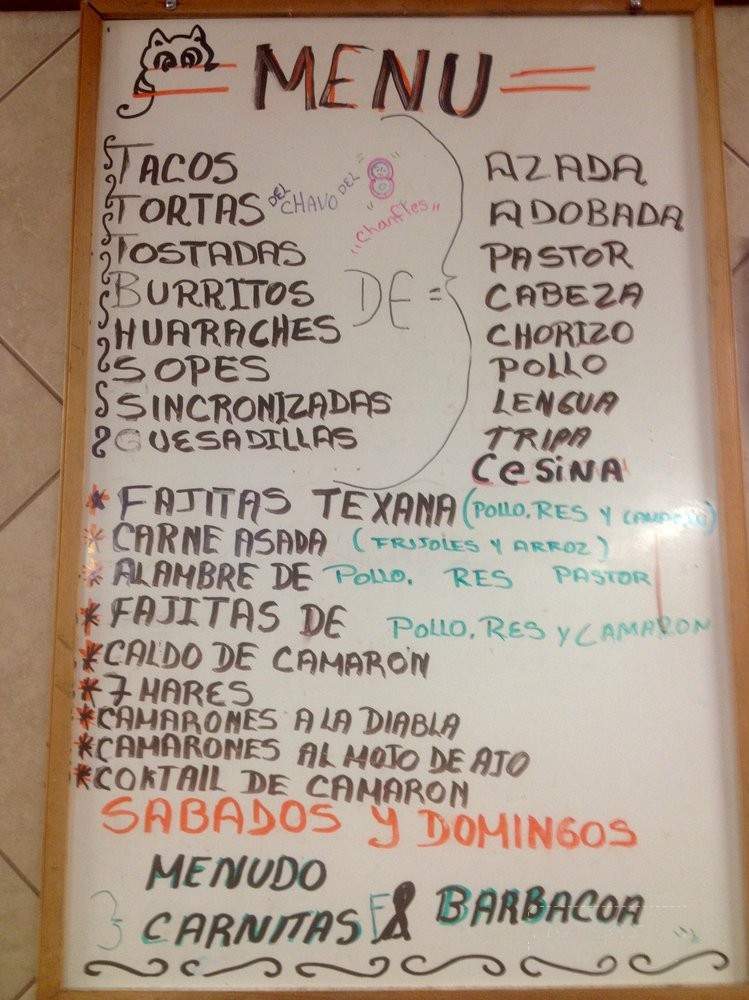 MENU
TACOS
TORTAS DEL CHAVO DEL "8"
"Chanfles"
TOSTADAS
BURRITOS
HUARACHES
SOPES
SINCRONIZADAS
GUESADILLAS
DE =
AZADA
ADOBADA
PASTOR
CABEZA
CHORIZO
POLLO
LENGUA
TRIPA
CeSiNA
* FAJITAS TEXANA (POLLO, RES Y CAMARON)
* CARNE ASADA (FRIJOLES Y ARROZ)
* ALAMBRE DE POLLO. RES PASTOR
* FAJITAS DE POLLO, RES Y CAMARON
* CALDO DE CAMARON
* 7 MARES
* CAMARONES A LA DIABLA
* CAMARONES AL MOJO DE AJO
* COKTAIL DE CAMARON
SABADOS Y DOMINGOS
MENUDO
CARNITAS & BARBACOA